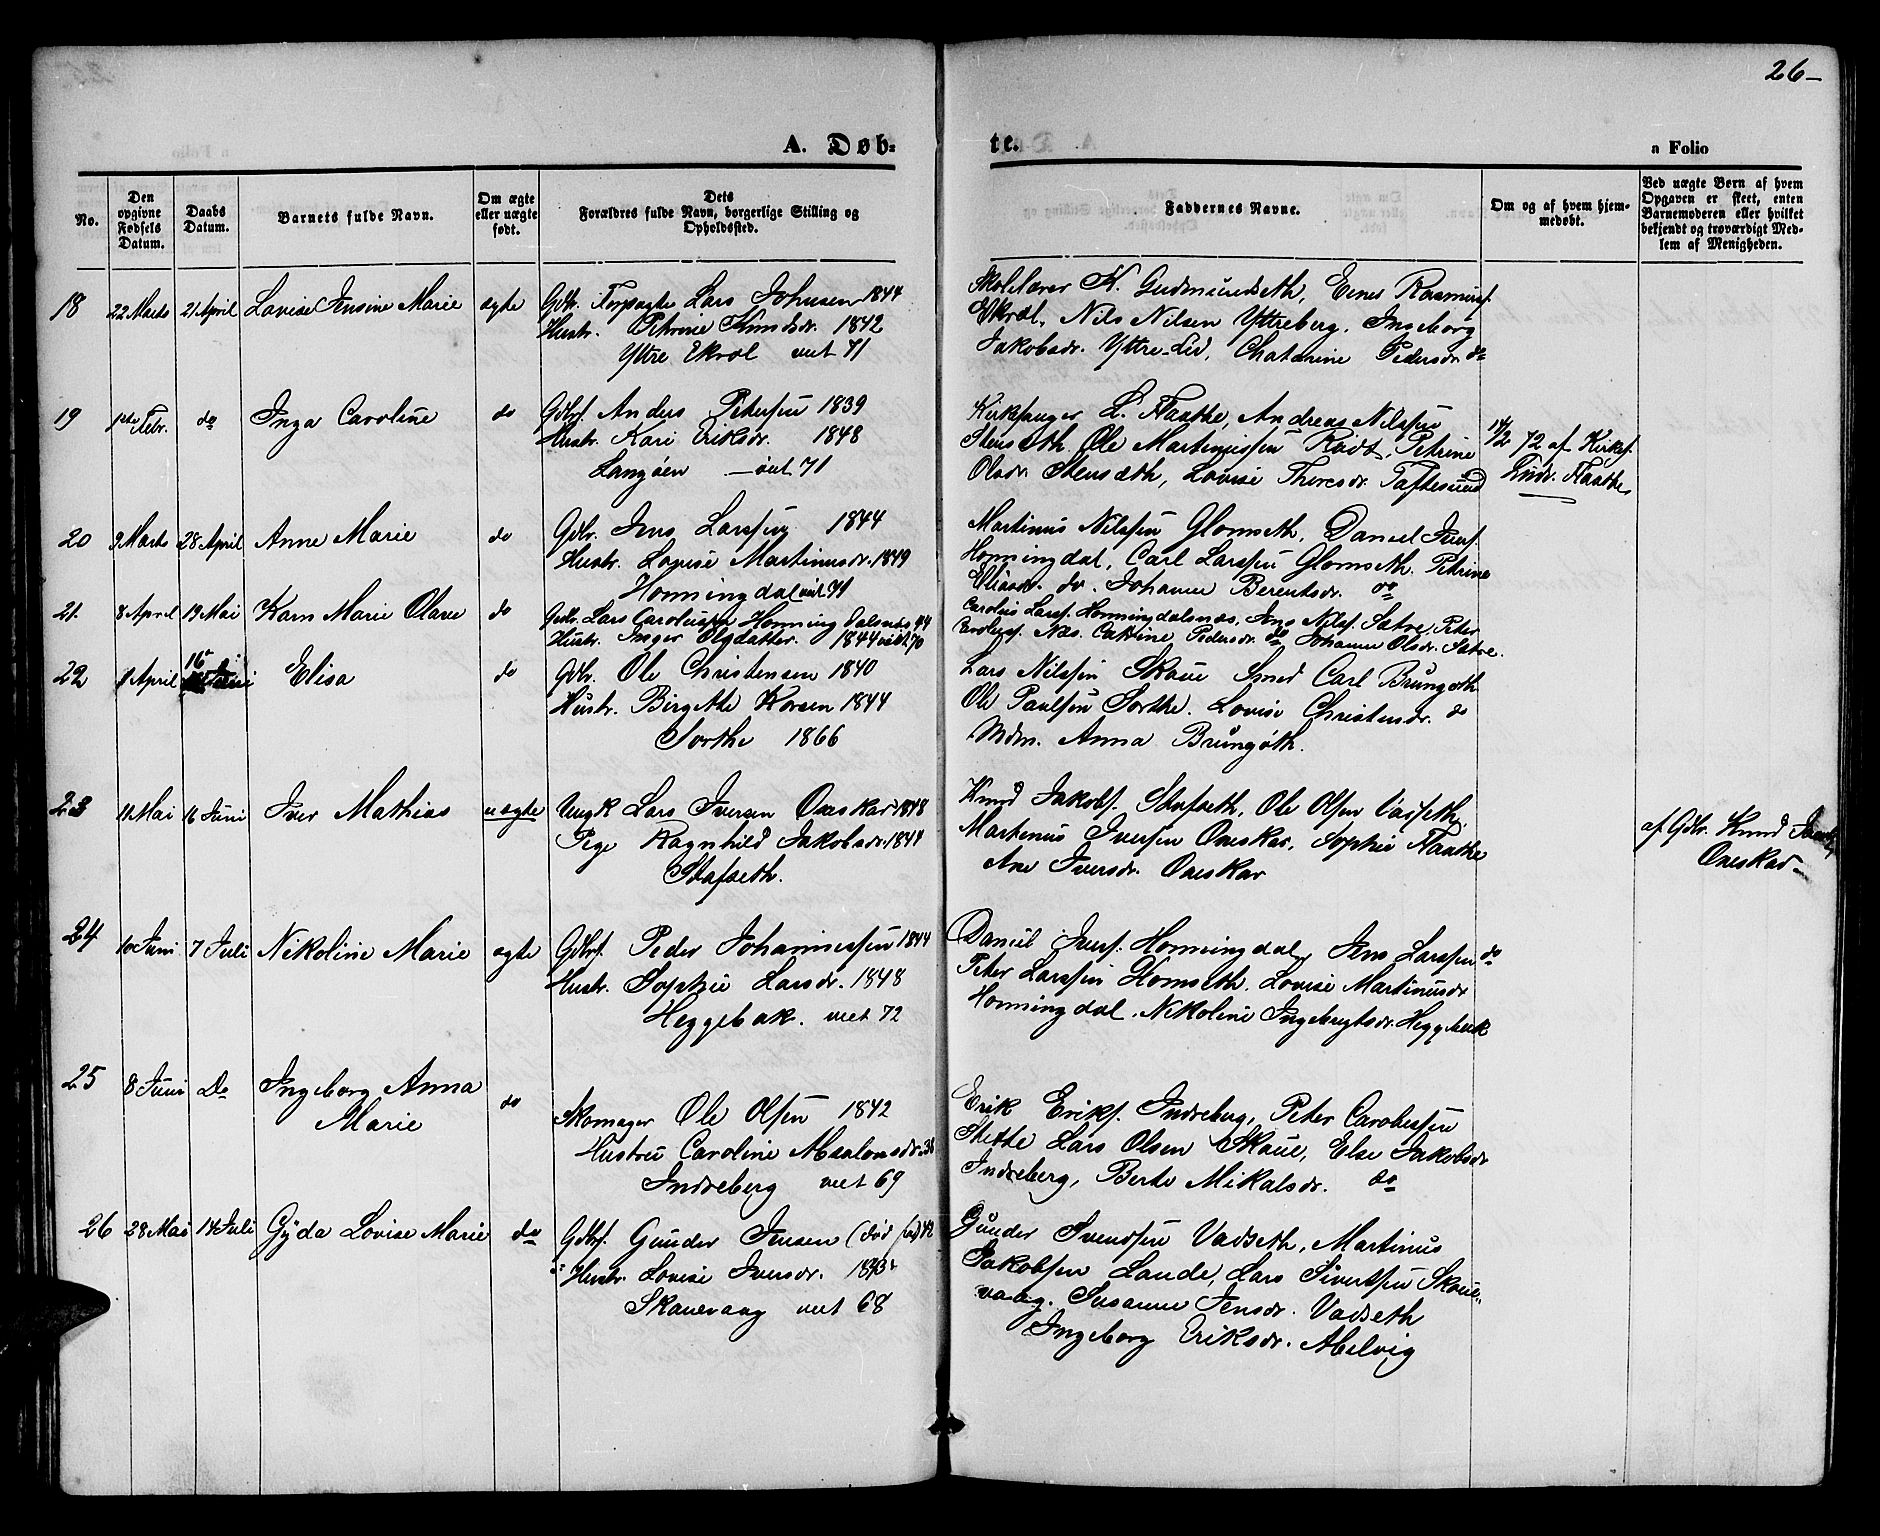 26-
A. Døb-
te.
n Folio
No.
Den opgivne Fødsels Datum.
Daabs Datum.
Barnets fulde Navn.
Om ægte eller uægte født.
Dets Forældres fulde Navn, borgerlige Stilling og Opholdssted.
Faddernes Navne.
Om og af hvem hjemmedøbt.
Ved uægte Børn af hvem Opgaven er skeet, enten Barnemoderen eller hvilket bekjendt og troværdigt Medlem af Menigheden.
18 22 Marts 21 April Lovise Jensine Marie ægte Gdbr. Lars Johnsen 1844
Hustr. Petrine Knudsdr. 1842
Yttre Ekrol viet 71
Skolelærer K. Gudmundseth, Enes Rasmusf.
Ekrol, Nils Nilsen Yttreberg, Ingeborg
Jakobsdr. Yttre-Lid, Chatarine Pedersdr. do
19 1ste Febr. do Inga Caroline do Gdbrf. Anders Petersen 1839
Hustr. Kari Eriksdr. 1848
Langøen viet 71
Kirksanger L. Flaathe, Andreas Nilssen
Stenseth Ole Martinussen Rødt, Petrine
Olsdr. Stensæth, Lovise Thoresdr. Taftesund
14/2 72 af Kirkes.
Lndr. Flaathe
20 9 Marts 28 April Anne Marie do Gdbr. Jens Larssen 1844
Hustr. Lovise Martinusdr. 1849
Honningdal viet 71
Martinus Nilssen Glomseth, Daniel Jensf.
Honningdal, Carl Larssen Glomseth. Petrine
Eliasdr. do. Johanne Berentsdr. do
21. 8 April 19 Mai Karn Marie Olave do Gdbr. Lars Carolussen Honningdalsnæs 44
Hustr. Inger Olsdatter. 1844 viet 70
Carolus Larsf. Honningdalsnæs, Jens Nilsf. Satre, Peter
Carolusf. Næs. Cathrine Pedersdr. do Johanne Olsdr. Satre.
22 11 April 16 Juni Elisa do Gdbr. Ole Christensen 1840
Hustr. Birgethe Korsen 1844
Sorthe 1866
Lars Nilssen Skoue Smed Carl Brungøth
Ole Paulsen Sorthe. Lovise Christensdr. do
Mdm. Anna Brungøth.
23 11 Mai 16 Juni Iver Mathias uægte Ungk Lars Iversen Oneskar 1848
Pige Ragnhild Jakobsdr. 1844
Stafseth.
Knud Jakobf. Stafseth, Ole Olsen Vasseth,
Martinus Iversen Oneskar, Sophie Flaathe
Ane Iversdr. Oneskar
af Gdbr. Knud
Oneskar
24 10 Juni 7 Juli Nikoline Marie ægte Gdbrf. Peder Johannessen 1844
Hustr. Sophie Larsdr. 1848
Heggebak. viet 72
Daniel Jensf. Honningdal, Jens Larssen do
Peter Larssen Glomseth. Lovise Martinusdr
Honningdal. Nikoline Ingebrigtsdr. Heggebak
25 8 Juni Do Ingeborg Anna
Marie
do
Skomager Ole Olsen 1842
Hustru Caroline Absalonsdr. 38
Indreberg viet 69
Erik Eriksf. Indreberg, Peter Carolussen
Stette Lars Olsen Skoue, Else Jakobsdr
Indreberg, Berte Mikalsdr. do
26 28 Mai 14 Juli Gyda Lovise Marie do Gdbrf. Gunder Jensen (død 42
Hustr. Lovise Iversdr.
Skouevaag viet 68
Gunder Svendsen Vadseth, Martinus
Jakobsen Lande, Lars Sivertsen Skoue-
vaag. Susanne Jensdr. Vadseth
Ingeborg Eriksdr. Abelvig